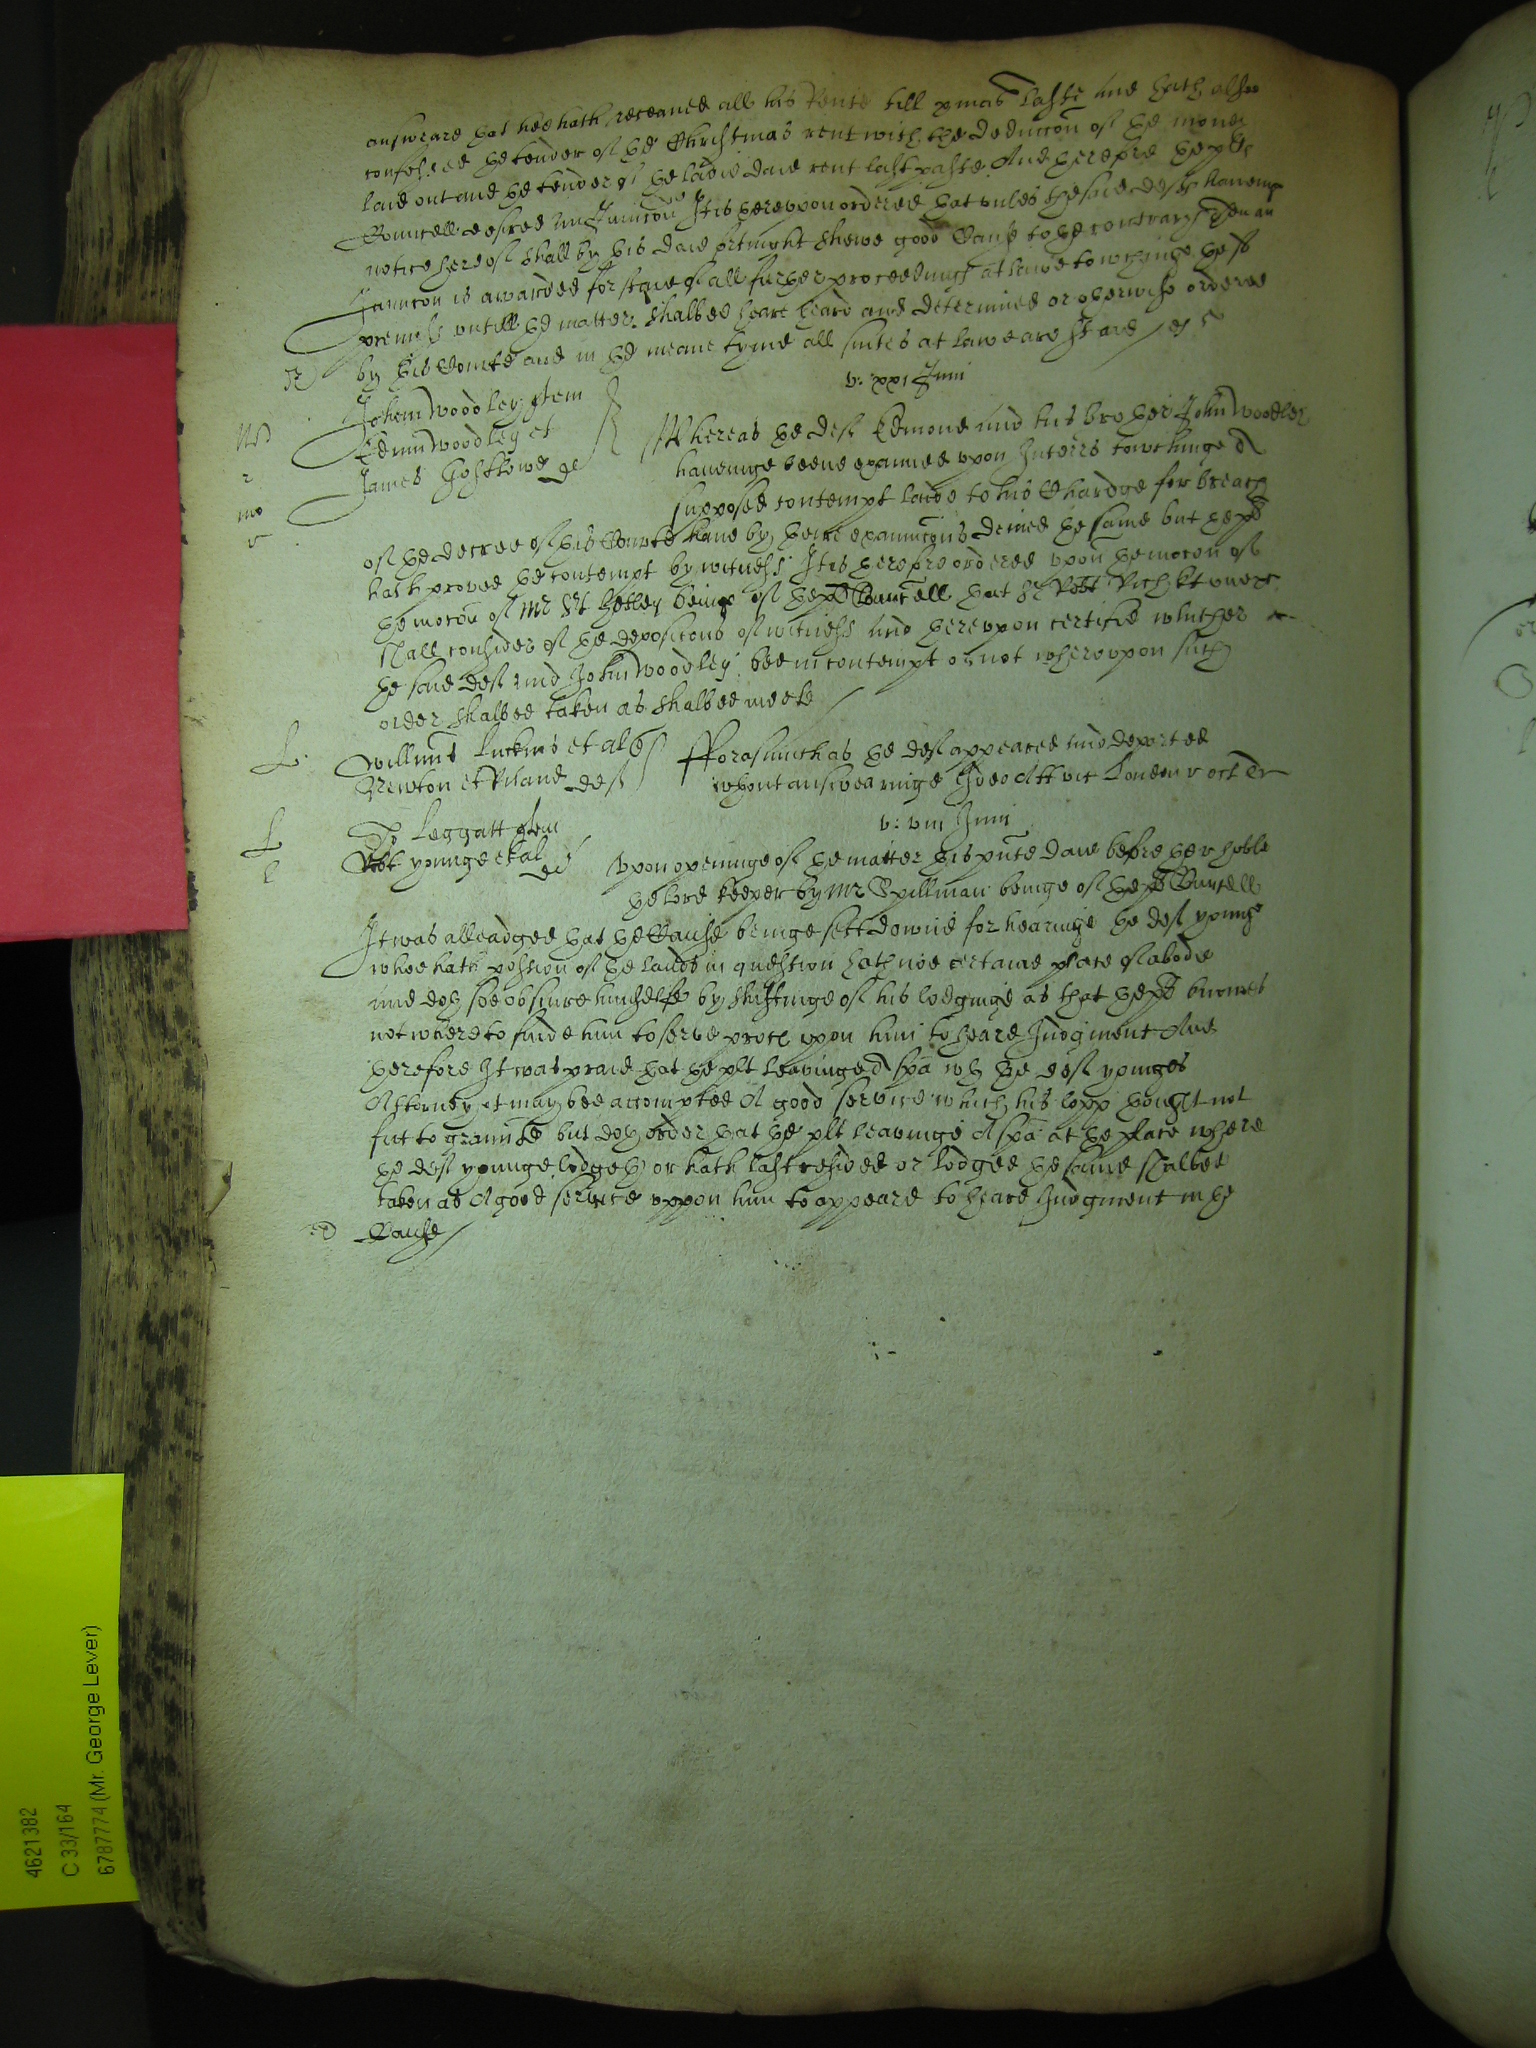 answeare that hee hath receaved all his Rente till xpmas laste and hath also
confessed the tender of the Christmas rent with the deduccon of the money
laid out and the tender of the ladie daie rent last paste And therefore the plts
Councell desired an Iniunccon It is thereupon ordered that unles the said defts haveinge
notice hereof shall by this daie fortnight shewe good Cause to the contrary Then an
Iunccon is awarded for staie of all further proceedings at lawe towchinge the
premiss untill the matter shalbee heare heard and determined or otherwise ordered
by this Courte and in the meane tyme all suites at lawe are staied
v: xxi Junii
John Woodley plem
Edm Woodley et
James
Whereas the deft Edmond and his brother John Woodley
haveinge beene examined upon Interrs towchinge A
supposed contempt laide to his Chardge for breach
of the decree of this Courte have by their examinacons denied the same but the plt
hath proved the contempt by witness It is therefore ordered upon the mocon of
the mocon of Mr being of the plts Councell that Sr Robt Rich kt one
shall consider of the deposicons of witness and thereupon certifie whether
the said deft and John Woodley bee in contempt or not whereupon such
order shalbee taken as shalbee meete
Willmus Luckins et al
Newton et def
Fforasmuch as the deft appeared and departed
wthout answearinge Ideo Att vic London
v: viii Junii
To Leggatt plem
Robt younge et al def
Upon openinge of the matter this pnte daie before the r hoble
the lord keeper by Mr Spillman beinge of the plts Councell
It was alleadged that the Cause beinge sett downe for hearinge the deft younge
whoe hath possion of the lands in question hath noe certaine place of abode
and doth soe obscure himselfe by shiftinge of his lodginge as that the plt knowes
not where to finde him to serve proces upon him to heare Iudgment And
therefore It was praied that the plt leavinge A spa wth the deft younges
Attorney it may bee accompted A good service which his lopp thought not
fitt to graunte but doth order that the plt leavinge A spa at the place where
the deft younge lodgeth or hath last resided or lodged the same shalbee
taken as A good service uppon him to appeare to heare Iudgment in the
Cause
4621382
C 33/164
6787774 (Mr. George Lever)